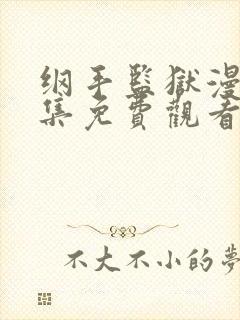 纲手監獄漫
集免費觀看
不大不小的夢